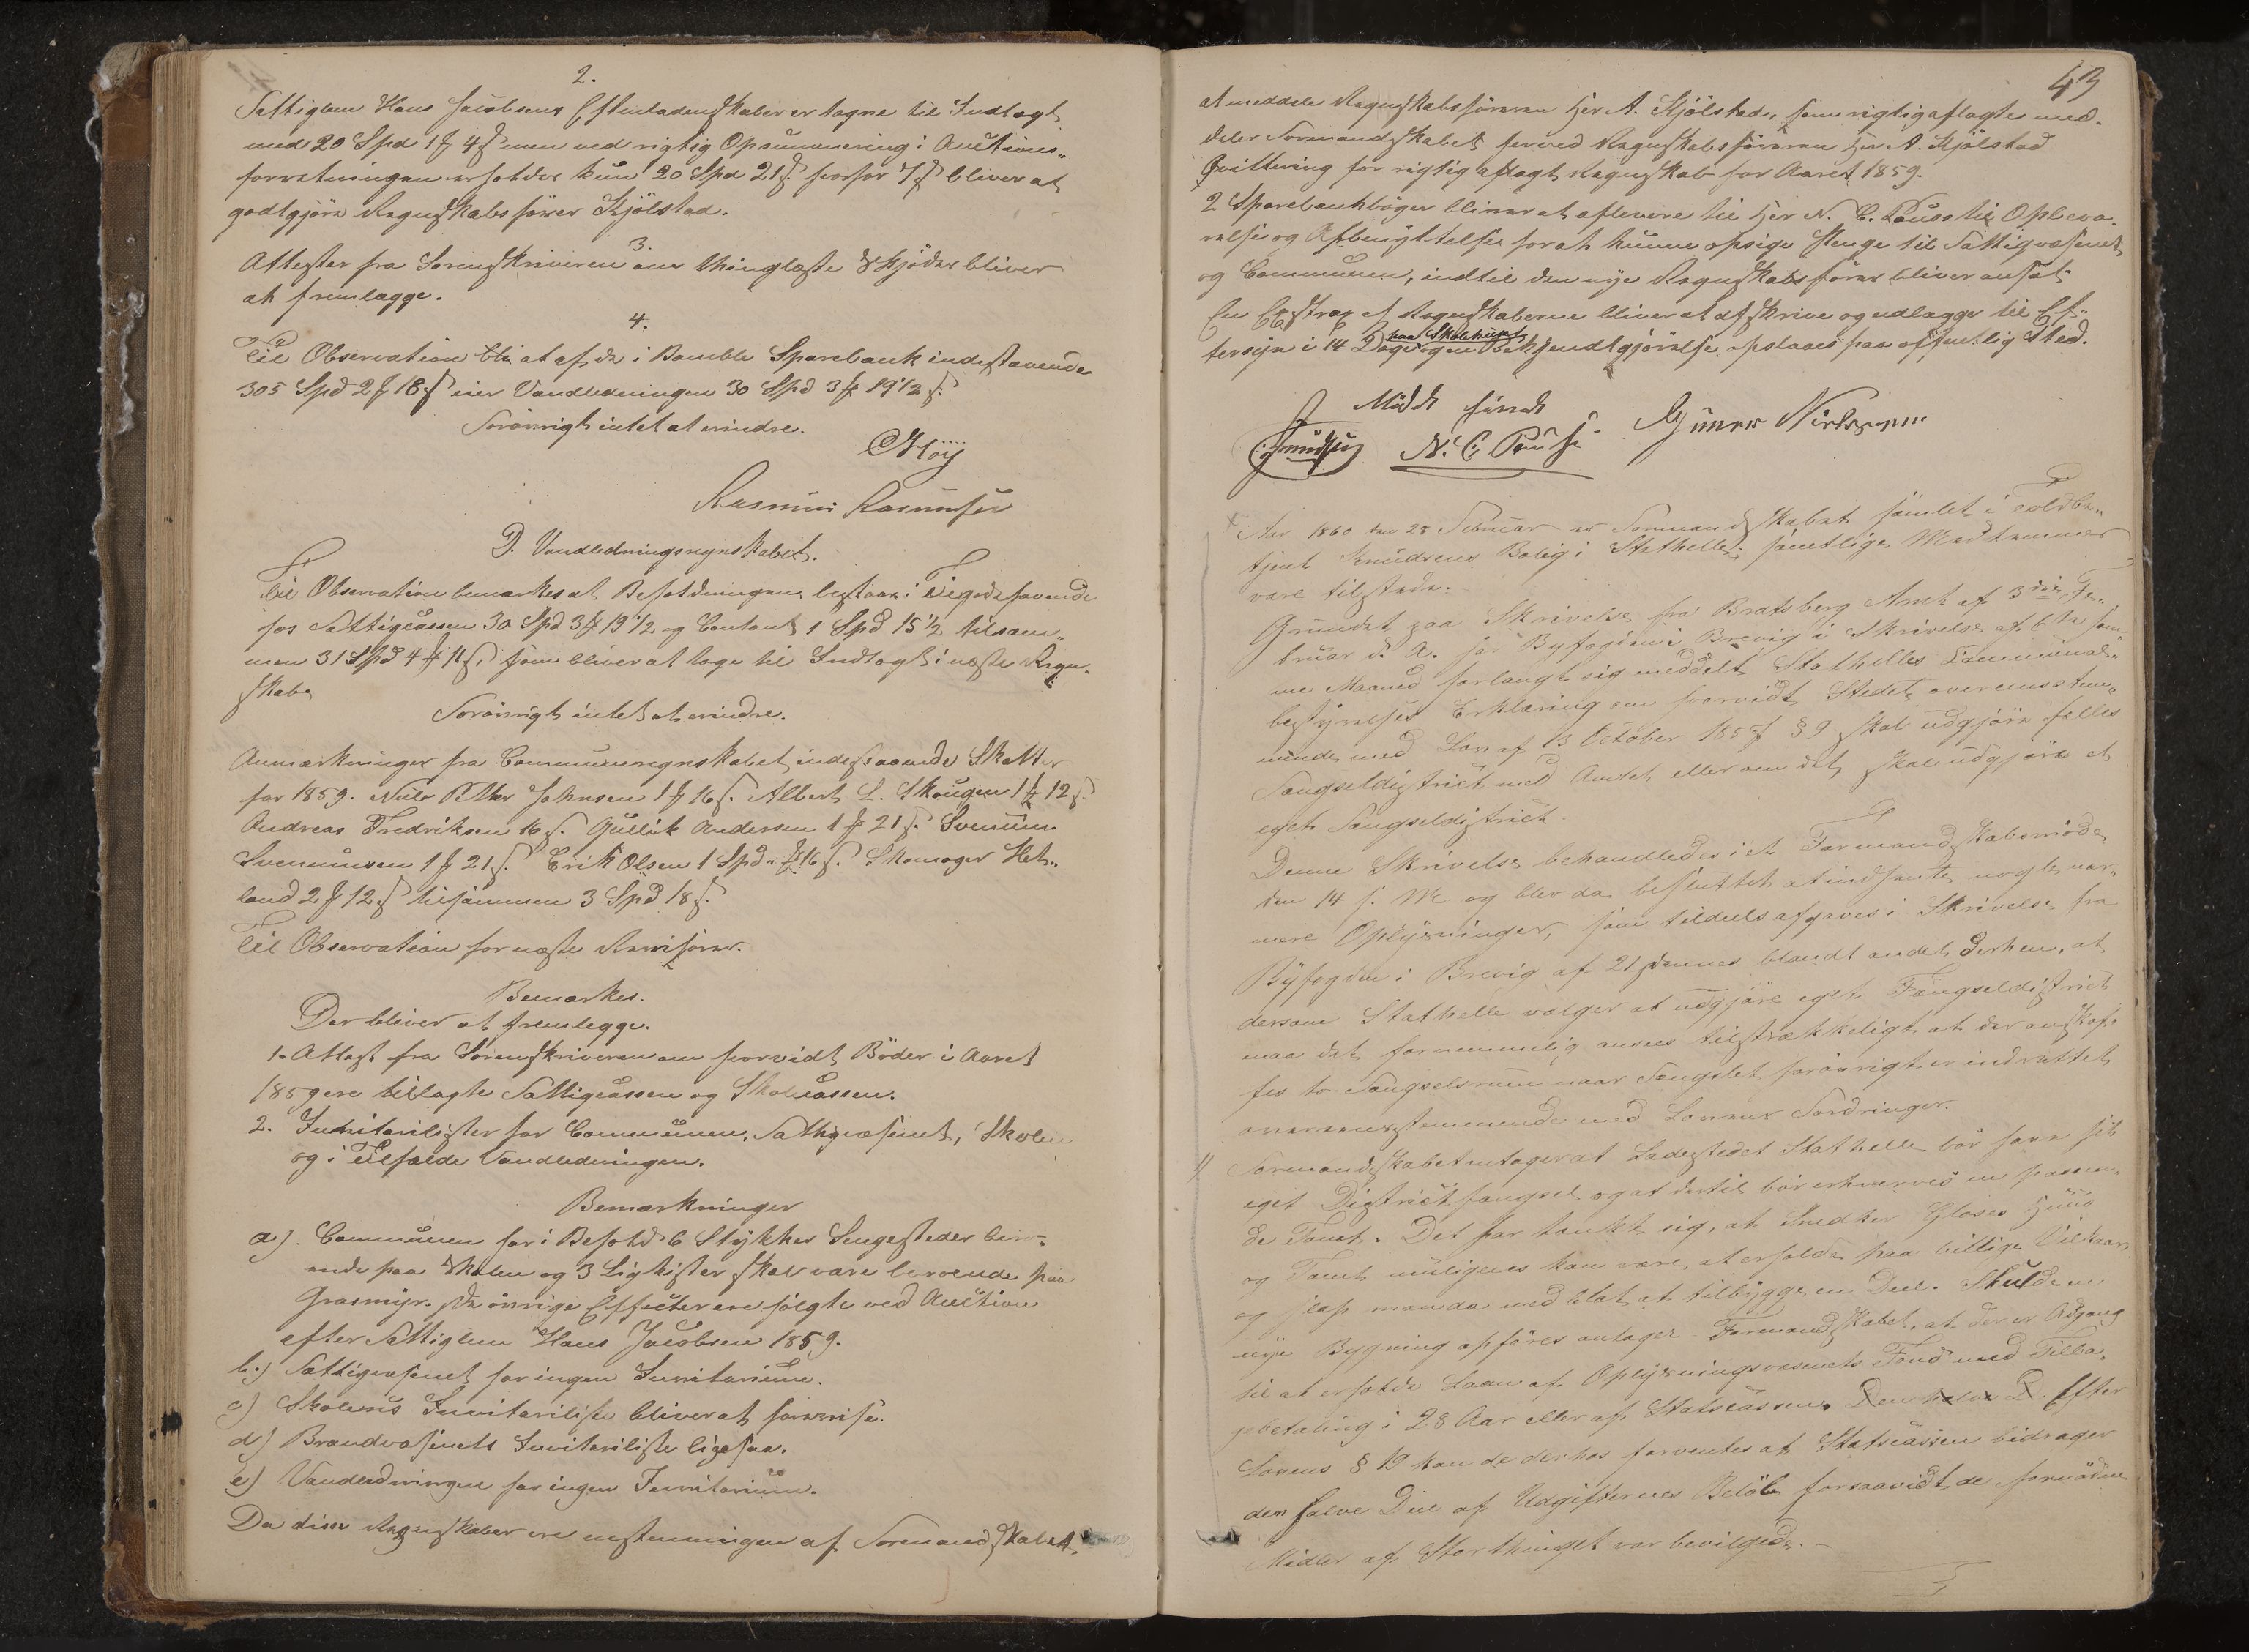 2.
Fattiglem Hans Jacobsens Efterladenskaber er tagne til Indtægt
med 20 Spd 1 ƒ 4 s men ved rigtig Opsummering i Auctions-
forretningen erholdes kun 20 Spd 21 s hvorfor 7 s bliver at
godtgjöre Regnskabsförer Kjölstad.
3.
Attester fra Sorenskriveren om thinglæste Skjöder bliver
at fremlægge.
4.
Til Observation at af de i Bamble Sparebank indestaaende
305 Spd 2 ƒ 18 s eier Vandledningen 30 Spd 3 ƒ 19½ s.
Forövrigt intet at erindre.
CHöy
Rasmus Rasmussen
D. Vandledningsregnskabet.
Til Observation bemærkes at Beholdningen bestaar i Tilgodehavende
hos Fattigcassen 30 Spd 3 ƒ 19½ og Contant 1 Spd 15½ tilsam-
men 31 Spd 4 ƒ 11 s, som bliver at tage til Indtægt i næste Regn-
skab.
Forövrigt intet at erindre.
Anmærkninger fra Communeregnskabet indestaaende Skatter
for 1859. Niels Petter Johnsen 1 ƒ 16 s. Albert L. Skougen 1 ƒ 12 s.
Andreas Fredriksen 16 s. Gullik Andersen 1 ƒ 21 s. Svenum
Svenumsen 1 ƒ 21 s. Erik Olsen 1 Spd - ƒ 16 s. Skomager Het-
land 2 ƒ 12 s tilsammen 3 Spd 18 s.
Til Observation for næste Revisorer.
Bemærkes.
Der bliver at fremlegge.
1. Attest fra Sorenskriveren om hvorvidt Böder i Aaret
1859 ere tillagte Fattigcassen og Skolecassen.
2. Inventarilister for Communen, Fattigvæsenet, Skolen
og i Tilfælde Vandledningen.
Bemærkninger
a). Communen har i Behold 6 Stykker Sengesteder bero-
ende paa Skolen og 3 Ligkister skal være beroende paa
Grasmyr. De övrige Effecter ere solgte ved Auction
efter Fattiglem Hans Jacobsen 1859.
b.) Fattigvæsenet har ingen Inventarium.
c) Skolens Inventariliste bliver at forevise.
d) Brandvæsenets Inventariliste ligesaa.
e) Vandledningen har ingen Inventarium.
Da disse Regnskaber ere enstemmigen af Formandskabet
43
at meddele Regnskabsföreren Hr A. Kjölstad, som rigtig aflagte med-
deler Formandskabet herved Regnskabsföreren Hr A. Kjölstad
Qvittering for rigtig aflagt Regnskab for Aaret 1859.
2 Sparebankböger bliver at aflevere til Hr N. C. Pauss til Opbeva-
relse og Afbenyttelse for at kunne opsige Penge til Fattigvæsenet
og Communen, indtil den nye Regnskabsförer bliver ansat.
En Extrax af Regnskaberne bliver at afskrive og udlægge til Ef-
paa Skolehuset
tersyn i 14 Dage og en Bekjendtgjörelse opslaaes paa offentlig Sted.
Knudsen N. C. Pauss Gunner Nielssen
Aar 1860 den 28 Februar er Formandskabet samlet i Toldbe-
tjent Knudsens Bolig i Stathelle; samtlige Medlemmer
vare tilstede.
Grundet paa Skrivelse fra Bratsberg Amt af 3die Fe-
bruar d. A. har Byfogden i Brevig i Skrivelse af 6te sam-
me Maaned forlangt sig meddelt Stathelles Communal-
bestyrelses Erklæring om hvorvidt Stedet overeensstem-
mende med Lov af 13 October 1857 § 9 skal udgjöre fælles
Fængseldistrict med Amtet eller om det skal udgjöre et
eget Fængseldistrict.
Denne Skrivelse behandledes i et Formandskabsmöde
den 14 f. M. og blev da besluttet at indhente nogle nær-
mere Oplysninger, som tildeels afgaves i Skrivelse fra
Byfogden i Brevig af 21 dennes blandt andet derhen, at
dersom Stathelle vælger at udgjöre eget Fængseldistrict
maa det formeenlig ansees tilstrækkeligt, at der anskaf-
fes to Fængselsrum naar Fængslet forövrigt er indrettet
overeensstemmende med Lovens Fordringer.
Formandskabet antager at Ladestedet Stathelle bör have sit
eget Districtfængsel og at dertil bör erhverves en passen-
de Tomt. Det har tænkt sig, at Snedker Gloses Huus
og Tomt muligens kan være at erholde paa billige Vilkaar
og hjalp man da med blot at tilbygge en Deel. Skulde en
nye Bygning opföres antager Formandskabet, at der er Adgang
til at erholde Laan af Oplysningsvæsenets Fond med Tilba-
gebetaling i 28 Aar eller af Statscassen. Den halve D. Efter
Lovens § 19 kan de derhos forventes at Statscassen bidrager
den halve Deel af Udgifternes Belöb forsaavidt de fornödne
Midler af Storthinget var bevilgede.